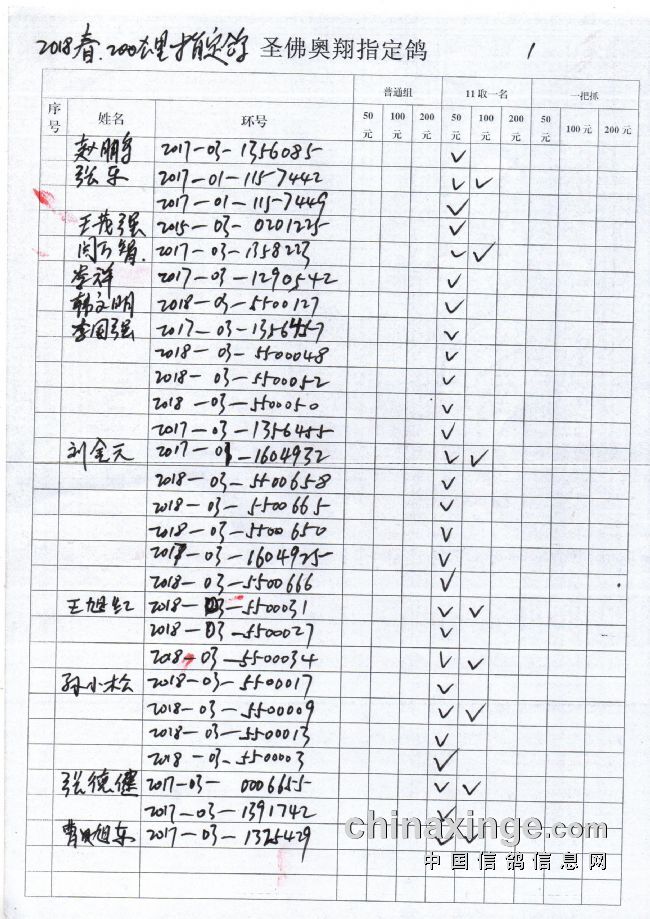 2018春.200公里指定鸽 圣佛奥翔指定鸽 1
序号 姓名 环号 普通组 11取一名 一把抓
50元 100元 200元 50元 100元 200元 50元 100元 200元
2017-03-1356085 ✓
张东 2017-01-1157442 ✓ ✓
2017-01-1157449 ✓
王茂强 2015-03-0201225 ✓
2017-03-1358223 ✓ ✓
李祥 2017-03-1290542 ✓
韩文明 2018-03-5500127 ✓
李国强 2017-03-1356457 ✓
2018-03-5500048 ✓
2018-03-5500052 ✓
2018-03-5500050 ✓
2017-03-1356455 ✓
刘金元 2017-03-1604932 ✓ ✓
2018-03-5500658 ✓
2018-03-5500665 ✓
2018-03-5500650 ✓
2017-03-1604925 ✓
2018-03-5500666 ✓
王旭红 2018-03-5500031 ✓ ✓
2018-03-5500027 ✓
2018-03-5500034 ✓ ✓
孙小松 2018-03-5500017 ✓
2018-03-5500009 ✓ ✓
2018-03-5500013 ✓
2018-03-5500003 ✓
张德健 2017-03-0006655 ✓ ✓
2017-03-1391742 ✓
曹旭东 2017-03-1325429 ✓ ✓
chinaxinge.com
中国信鸽信息网